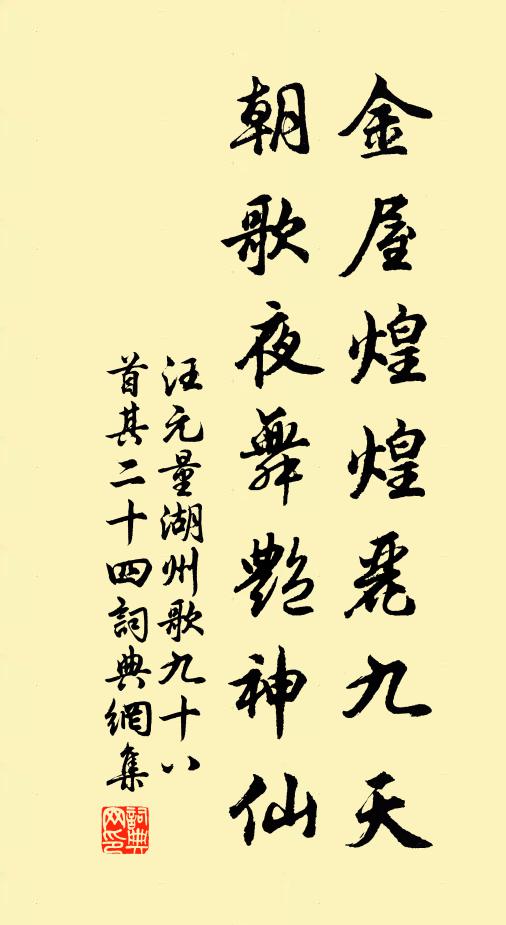 金屋煌煌麗九天
朝歌夜舞艷神仙
汪元量湖州歌九十八
首其二十四詞典網集
詞典
网印